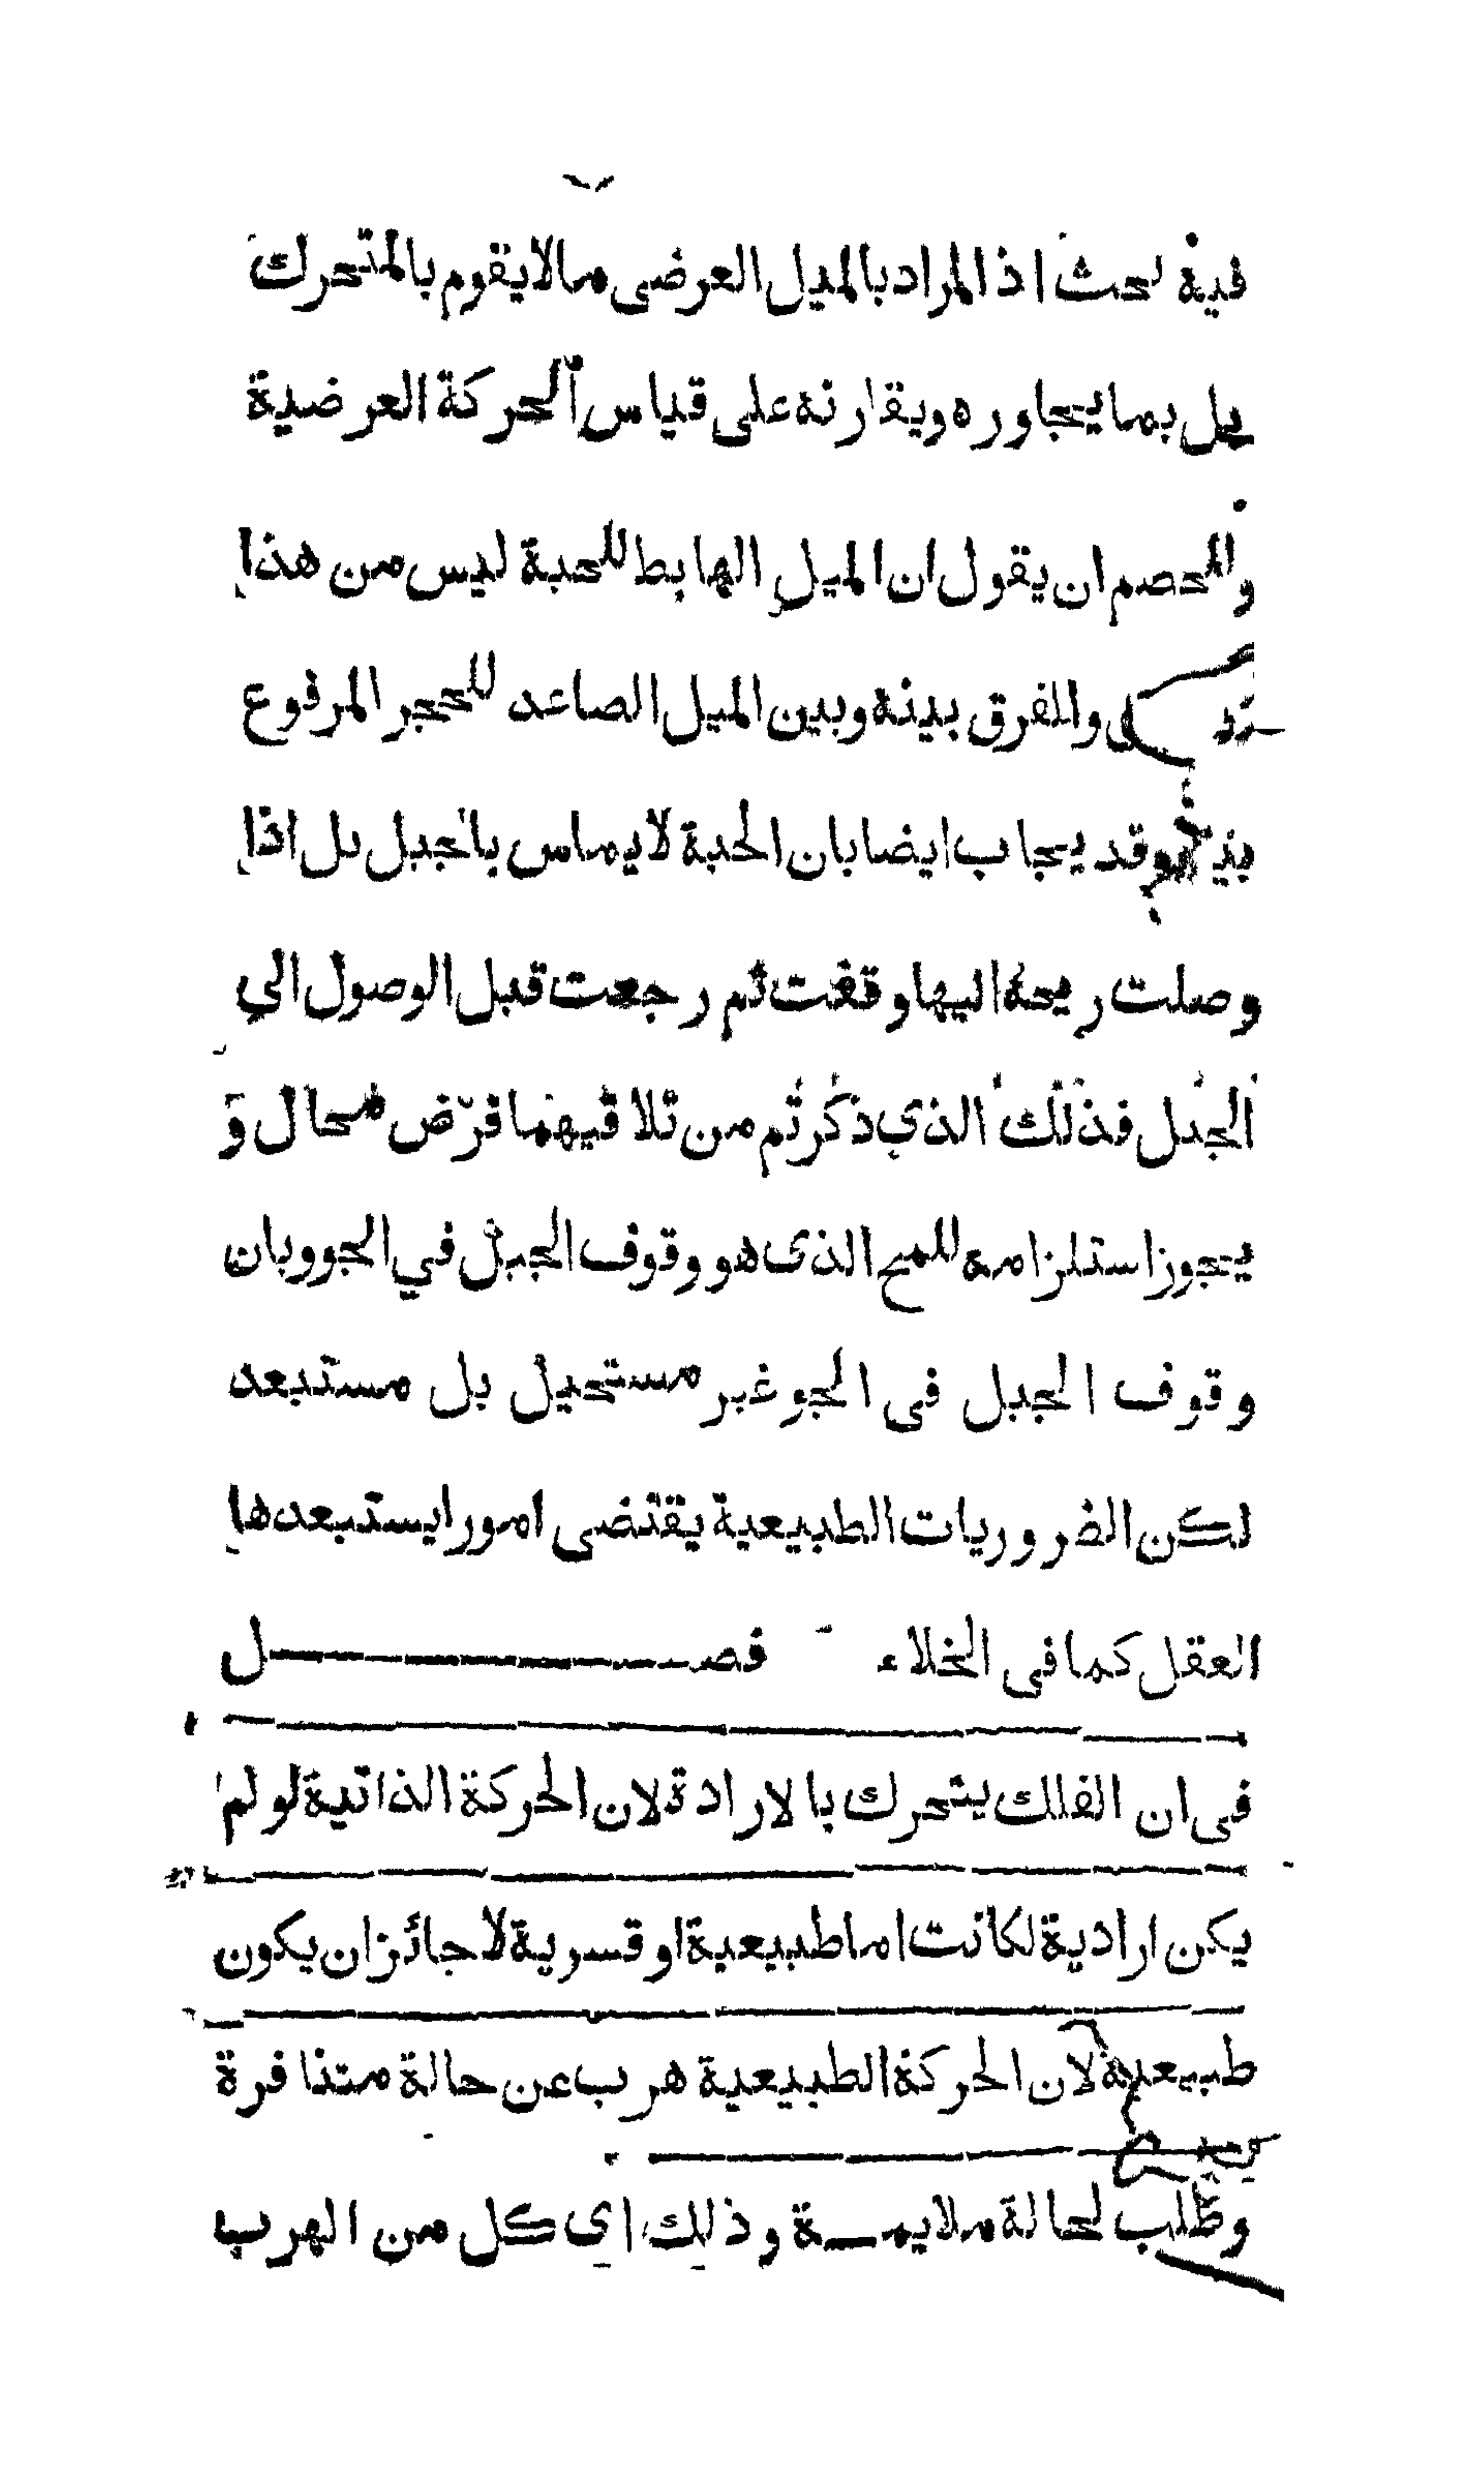 فيه بحث اذ المراد بالميل العرضى مالا يقوم بالمتحرك
بل بما يجاوره ويقارنه على قياس الحركة العرضية
وللخصم ان يقول ان الميل الهابط للحبة ليس من هذا
والفرق بينه وبين الميل الصاعد للحجر المرفوع
وقد يجاب ايضا بان الحبة لا يماس بالجبل بل اذا
وصلت ريحه اليها وقفت ثم رجعت قبل الوصول الي
الجبل فذلك الذي ذكرتم من تلاقيهما فرض محال و
يجوز استلزامه للمح الذى هو وقوف الجبل في الجو وبان
وقوف الجبل فى الجو غير مستحيل بل مستبعد
لكن الضروريات الطبيعية يقتضى امورا يستبعدها
العقل كما فى الخلاء فصل
فى ان الفلك يتحرك بالارادة لان الحركة الذاتية لو لم
يكن ارادية لكانت اما طبيعية او قسرية لا جائز ان يكون
طبيعية لان الحركة الطبيعية هرب عن حالة متنافرة
وطلب لحالة ملايمة وذلك اي كل من الهرب